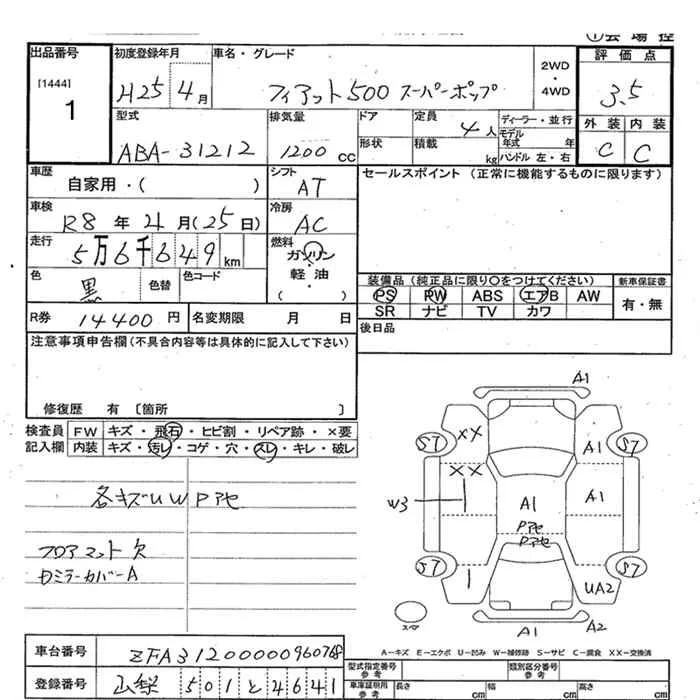 ①会場控
出品番号 初度登録年月 車名・グレード 2WD・4WD 評価点
[1444]
1 H25 4月 フィアット500 スーパーポップ 3.5
型式 排気量 ドア 定員 ディーラー・並行 外装 内装
ABA-31212 1200cc 4人 モデル年式 年 C C
形状 積載 kg ハンドル 左・右
車歴 シフト セールスポイント (正常に機能するものに限ります)
自家用・( ) AT
車検 冷房
R8年4月(25日) AC
走行 燃料
5万6千649km ガソリン
色 色替 色コード 軽・油
黒 ( )
装備品 (純正品に限り○をつけてください) 新車保証書
PS PW ABS エアB AW 有・無
SR ナビ TV カワ
R券 14400円 名変期限 月 日 後日品
注意事項申告欄(不具合内容等は具体的に記入して下さい)
修復歴 有 〔箇所 〕
検査員 FW キズ・飛石・ヒビ割・リペア跡・×要
記入欄 内装 キズ・汚レ・コゲ・穴・スレ・キレ・破レ
各キズUWPアセ
フロアマット欠
ミラーカバーA
A1
S7 XX A1 S7
XX
W3 A1 A1
Pアセ
Pアセ
S7 S7
UA2
スペア A1 A2
A-キズ E-エクボ U-凹み W-補修跡 S-サビ C-腐食 XX-交換済
車台番号 ZFA31200000960768 型式指定番号 参考 類別区分番号 参考
登録番号 山梨 501 と 4641 車庫証明用 参考 長さ cm 幅 cm 高さ cm